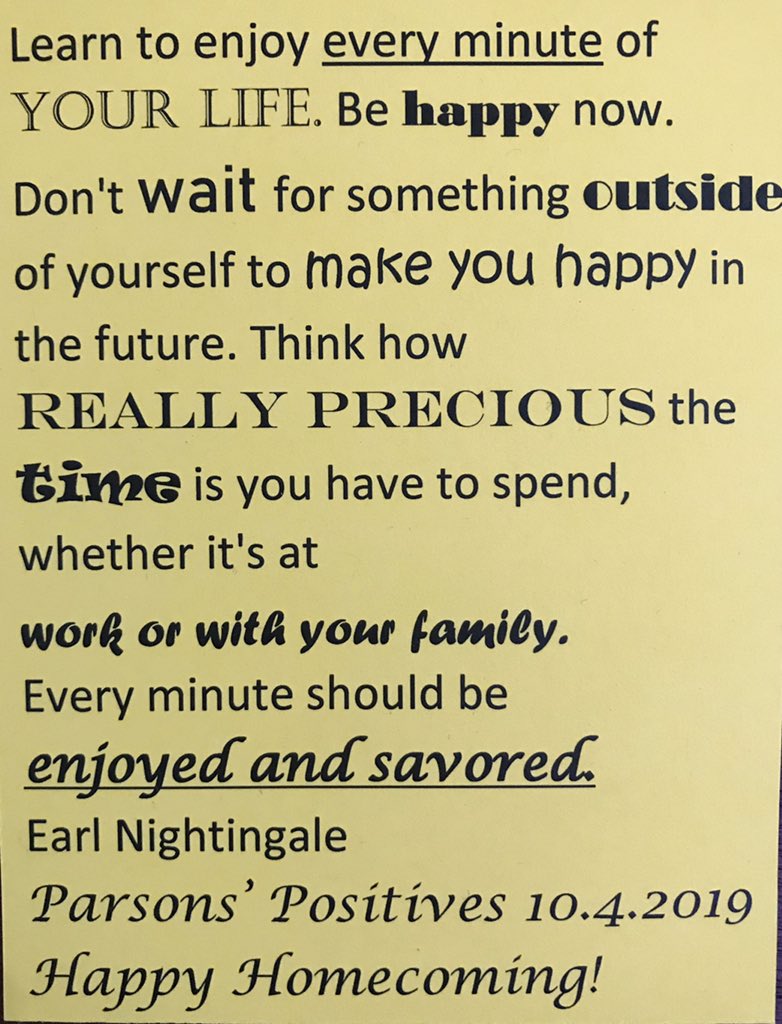 Learn to enjoy every minute of
YOUR LIFE. Be happy now.
Don't wait for something outside
of yourself to make you happy in
the future. Think how
REALLY PRECIOUS the
time is you have to spend,
whether it's at
work or with your family.
Every minute should be
enjoyed and savored.
Earl Nightingale
Parsons' Positives 10.4.2019
Happy Homecoming!